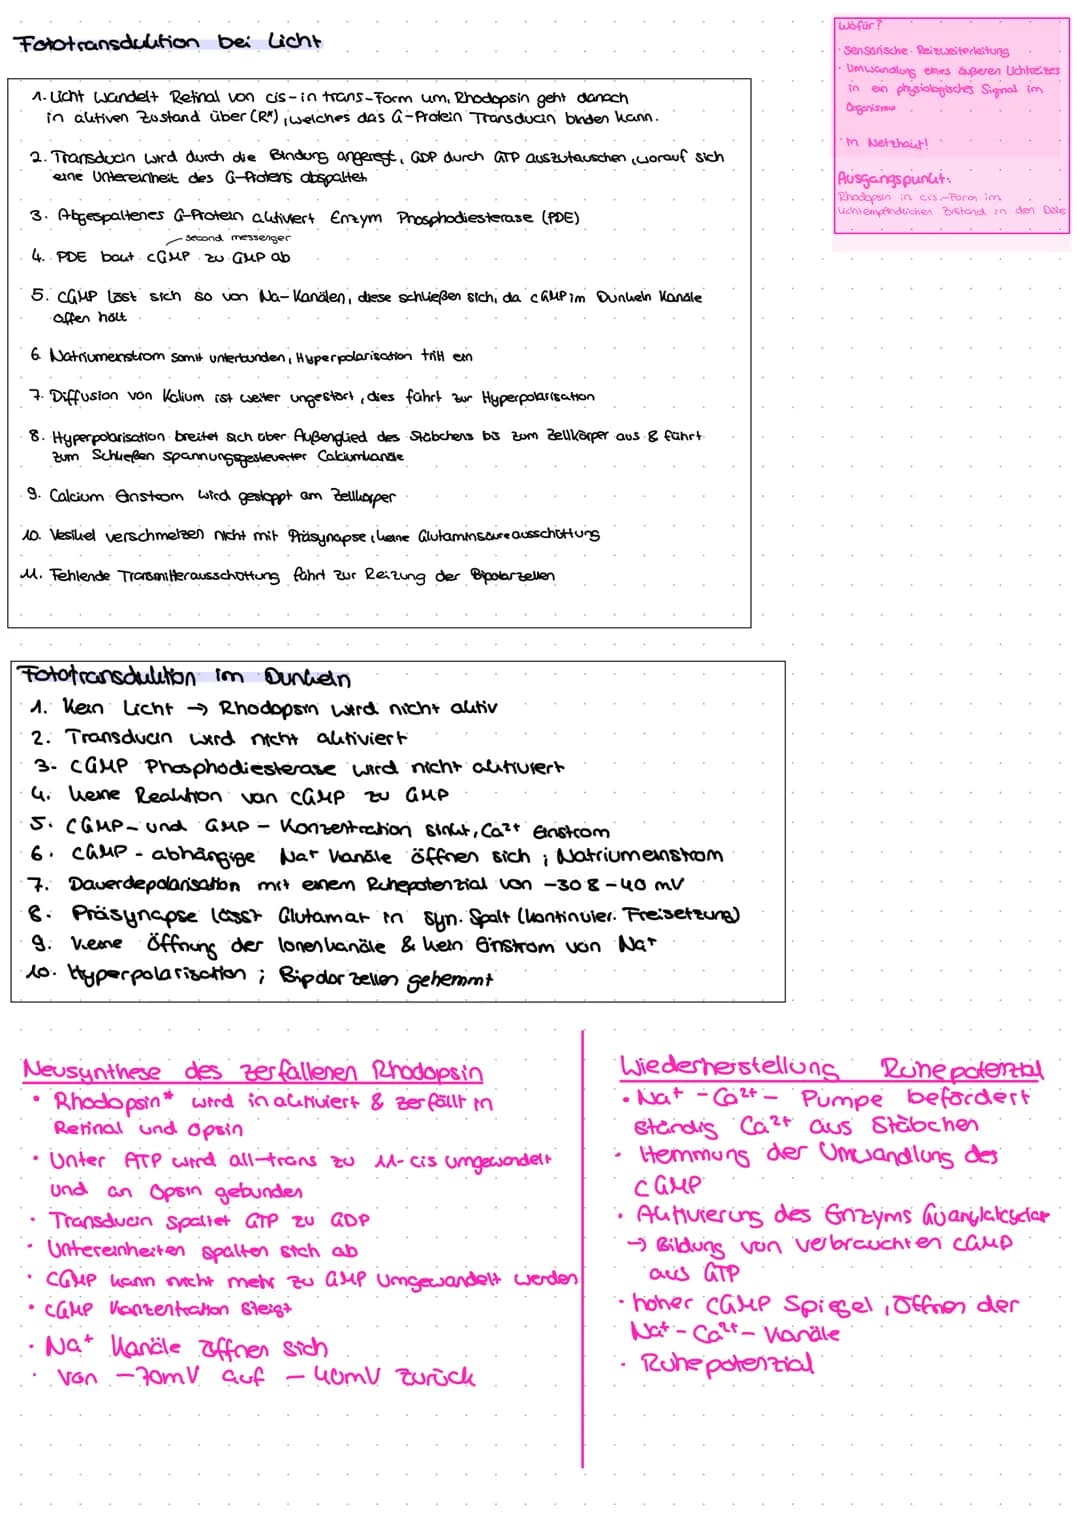 Fototransduktion bei Licht
1. Licht wandelt Retinal von cis- in trans-Form um, Rhodopsin geht danach
in aktiven Zustand über (R*), welches das G-Protein Transducin binden kann.
2. Transducin wird durch die Bindung angeregt, GDP durch GTP auszutauschen, worauf sich
eine Untereinheit des G-Proteins abspaltet
3. Abgespaltenes G-Protein aktiviert Enzym Phosphodiesterase (PDE)
second messenger
4. PDE baut cGMP zu GMP ab
5. cGMP löst sich so von Na-Kanälen, diese schließen sich, da cGMP im Dunkeln Kanäle
offen hält
6. Natriumenstrom somit unterbunden, Hyperpolarisation tritt ein
7. Diffusion von Kalium ist weiter ungestört, dies führt zur Hyperpolarisation
8. Hyperpolarisation breitet sich über Außenglied des Stäbchens bis zum Zellkörper aus & führt
zum Schließen spannungsgesteuerter Calciumkanäle
9. Calcium Einstrom wird gestoppt am Zellkörper
10. Vesikel verschmelzen nicht mit Präsynapse, keine Glutaminsäureausschüttung
11. Fehlende Transmitterausschüttung führt zur Reizung der Bipolarzellen
Wofür?
· Sensorische Reizweiterleitung
· Umwandlung eines äußeren Lichtreizes
in ein physiologisches Signal im
Organismus
· in Netzhaut!
Ausgangspunkt:
Rhodopsin in cis-Form im
lichtempfindlichen Zustand in den Disks
Fototransduktion im Dunkeln
1. Kein Licht → Rhodopsin wird nicht aktiv
2. Transducin wird nicht aktiviert
3. cGMP Phosphodiesterase wird nicht aktiviert
4. keine Reaktion von cGMP zu GMP
5. cGMP- und GMP-Konzentration sinkt, Ca²⁺ Einstrom
6. cGMP-abhängige Na⁺ Kanäle öffnen sich; Natriumeinstrom
7. Dauerdepolarisation mit einem Ruhepotenzial von -30 & -40 mV
8. Präsynapse lässt Glutamat in syn. Spalt (kontinuier. Freisetzung)
9. keine Öffnung der Ionenkanäle & kein Einstrom von Na⁺
10. Hyperpolarisation; Bipolarzellen gehemmt
Neusynthese des zerfallenen Rhodopsin
• Rhodopsin* wird inaktiviert & zerfällt in
Retinal und Opsin
• Unter ATP wird all-trans zu 11-cis umgewandelt
und an Opsin gebunden
• Transducin spaltet GTP zu GDP
• Untereinheiten spalten sich ab
• cGMP kann nicht mehr zu GMP umgewandelt werden
• cGMP Konzentration steigt
• Na⁺ Kanäle öffnen sich
• Von -70mV auf -40mV zurück
Wiederherstellung Ruhepotenzial
• Na⁺-Ca²⁺- Pumpe befördert
ständig Ca²⁺ aus Stäbchen
• Hemmung der Umwandlung des
cGMP
• Aktivierung des Enzyms Guanylatcyclas
→ Bildung von verbrauchten cGMP
aus GTP
• hoher cGMP Spiegel, Öffnen der
Na⁺-Ca²⁺-Kanäle
• Ruhepotenzial